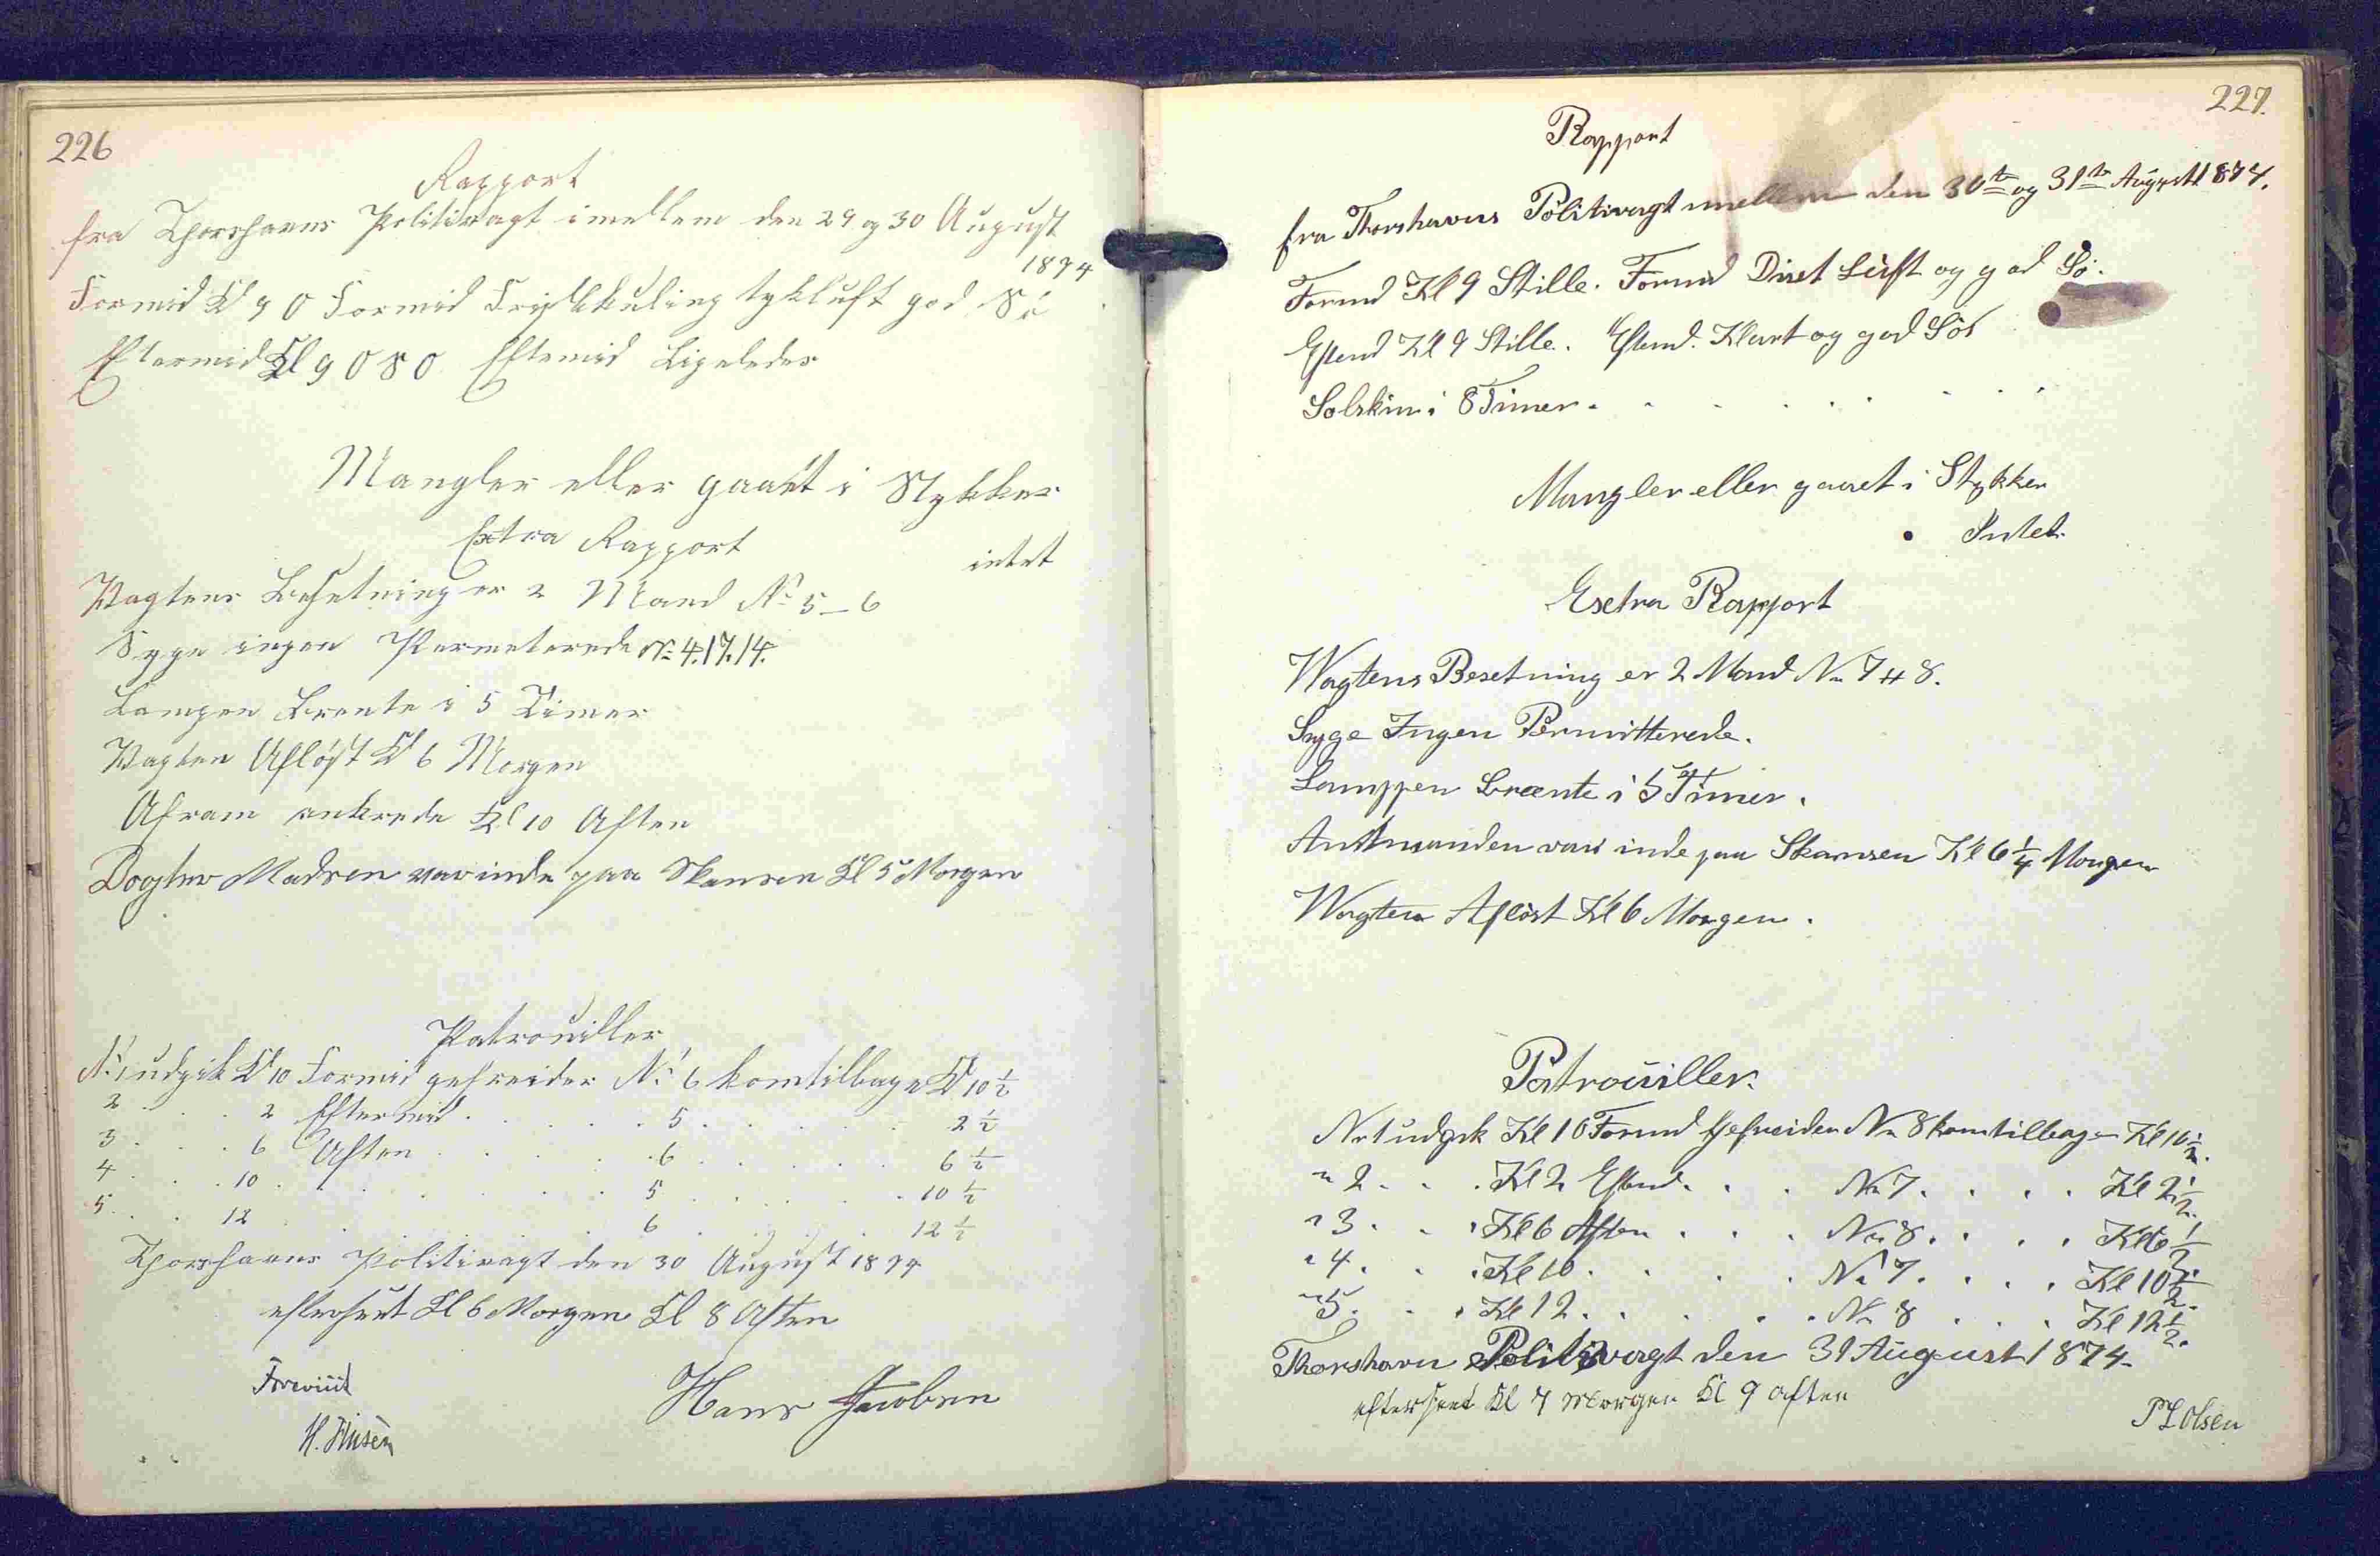 226
Rapport
fra Thorshavns Politivagt imellem den 29 og 30 August
1874
Formid Kl 9 O Formid Friskkuling tykluft god Sö
Eftermid Kl 9 O S O Eftemid Ligeledes
Mangler eller gaaet i Stykker
intet
Extra Rapport
Vagtens Besetning er 2 Mand No 5-6
Syge ingen Permeterede No 4.17.14.
Lampen Brente i 5 Timer
Vagten Afløst Kl 6 Morgen
ankrede Kl 10 Aften
Dogter Madsen var inde paa Skansen Kl 5 Morgen
Patrouiller
No 1 udgik Kl 10 Formid gefreider No 6 kom tilbage Kl 10 1/2
2 . . . 2 Eftermid . . . . 5 . . . . 2 1/2
3 . . . 6 Aften . . . . 6 . . . . 6 1/2
4 . . . 10 . . . . 5 . . . . 10 1/2
5 . . . 12 . . . . 6 . . . . 12 1/2
Thorshavns Politivagt den 30 August 1874
efterseet Kl 6 Morgen Kl 8 Aften
Foreviist
Hans Jacobsen
227.
Rapport
fra Thorshavns Politivagt mellem den 30te og 31te August 1874.
Formd Kl 9 Stille. Formd Diset Luft og god Sö.
Eftmd Kl 9 Stille. Eftmd. Klart og god Sö
Solskin i 8 Timer . . . . . . . .
Mangler eller gaaet i Stykker
Intet.
Exstra Rapport
Wagtens Besetning er 2 Mand No 7 # 8.
Syge Ingen Permitterede.
Lamppen Brænte i 5 Timer.
Amtmanden var inde paa Skansen Kl 6 1/4 Morgen
Wagten Aflöst Kl 6 Morgen.
Patrouiller.
No 1 udgik Kl 10 Formd Gefreider No 8 kom tilbage Kl 10 1/2.
" 2 . . . Kl 2 Eftmd. . . No 7. . . . Kl 2 1/2.
" 3 . . . Kl 6 Aften . . . No 8. . . . Kl 6 1/2.
" 4 . . . Kl 10. . . . . No 7. . . . Kl 10 1/2.
" 5. . . Kl 12. . . . . No 8 . . . Kl 12 1/2.
Thorshavn Politivagt den 31 August 1874.
efterseet Kl 7 Morgen Kl 9 aften
Olsen